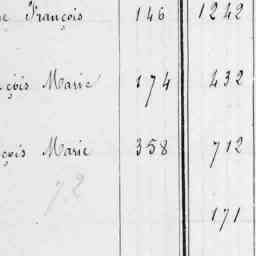 François 146 1242
çois Marie 174 432
çois Marie 358 712
72
171